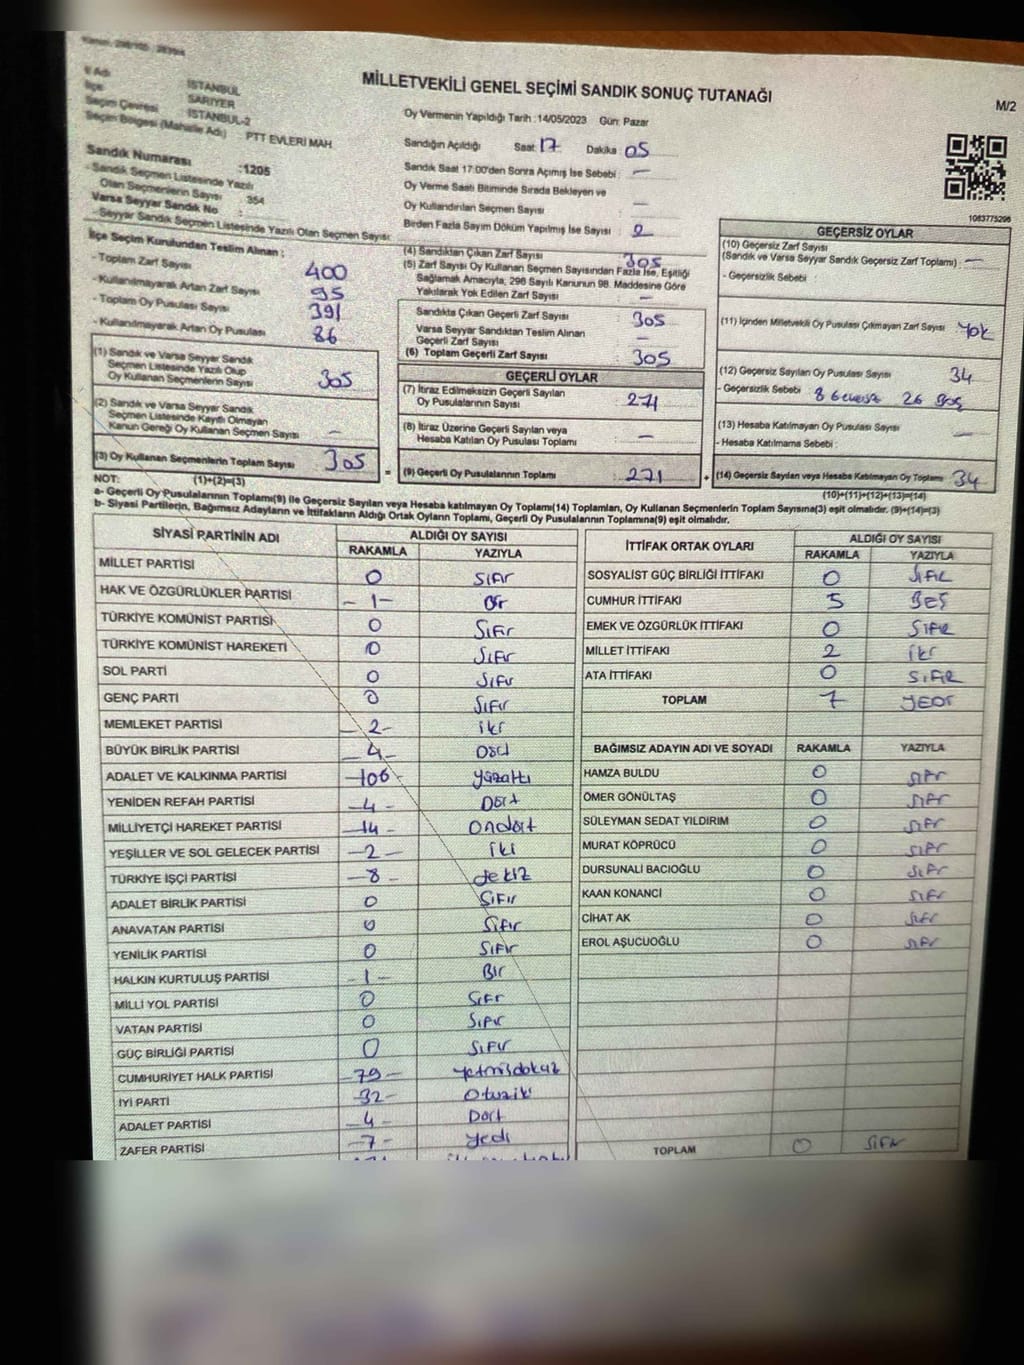 MİLLETVEKİLİ GENEL SEÇİMİ SANDIK SONUÇ TUTANAĞI
M/2
İl Adı İSTANBUL
İlçe SARIYER
Seçim Çevresi İSTANBUL-2
Seçim Bölgesi (Mahalle Adı) PTT EVLERİ MAH.
Sandık Numarası :1205
- Sandık Seçmen Listesinde Yazılı
Olan Seçmenlerin Sayısı : 354
Varsa Seyyar Sandık No :
- Seyyar Sandık Seçmen Listesinde Yazılı Olan Seçmen Sayısı:
Oy Vermenin Yapıldığı Tarih :14/05/2023 Gün: Pazar
Sandığın Açıldığı Saat 17 Dakika 05
Sandık Saat 17:00'den Sonra Açımış İse Sebebi : —
Oy Verme Saati Bitiminde Sırada Bekleyen ve
Oy Kullandırılan Seçmen Sayısı : —
Birden Fazla Sayım Döküm Yapılmış İse Sayısı : 0
1083775296
İlçe Seçim Kurulundan Teslim Alınan ;
- Toplam Zarf Sayısı : 400
- Kullanılmayarak Artan Zarf Sayısı : 95
- Toplam Oy Pusulası Sayısı : 391
- Kullanılmayarak Artan Oy Pusulası : 86
(1) Sandık ve Varsa Seyyar Sandık
Seçmen Listesinde Yazılı Olup
Oy Kullanan Seçmenlerin Sayısı : 305
(2) Sandık ve Varsa Seyyar Sandık
Seçmen Listesinde Kayıtlı Olmayan
Kanun Gereği Oy Kullanan Seçmen Sayısı : —
(3) Oy Kullanan Seçmenlerin Toplam Sayısı : 305
(1)+(2)=(3)
(4) Sandıktan Çıkan Zarf Sayısı : 305
(5) Zarf Sayısı Oy Kullanan Seçmen Sayısından Fazla İse, Eşitliği
Sağlamak Amacıyla, 298 Sayılı Kanunun 98. Maddesine Göre
Yakılarak Yok Edilen Zarf Sayısı : —
Sandıkta Çıkan Geçerli Zarf Sayısı : 305
Varsa Seyyar Sandıktan Teslim Alınan
Geçerli Zarf Sayısı : —
(6) Toplam Geçerli Zarf Sayısı : 305
GEÇERLİ OYLAR
(7) İtiraz Edilmeksizin Geçerli Sayılan
Oy Pusulalarının Sayısı : 271
(8) İtiraz Üzerine Geçerli Sayılan veya
Hesaba Katılan Oy Pusulası Toplamı : —
= (9) Geçerli Oy Pusulalarının Toplamı : 271 +
GEÇERSİZ OYLAR
(10) Geçersiz Zarf Sayısı
(Sandık ve Varsa Seyyar Sandık Geçersiz Zarf Toplamı) : —
- Geçersizlik Sebebi :
(11) İçinden Milletvekili Oy Pusulası Çıkmayan Zarf Sayısı : Yok
(12) Geçersiz Sayılan Oy Pusulası Sayısı : 34
- Geçersizlik Sebebi : 8 26 Boş
(13) Hesaba Katılmayan Oy Pusulası Sayısı : —
- Hesaba Katılmama Sebebi :
(14) Geçersiz Sayılan veya Hesaba Katılmayan Oy Toplamı : 34
(10)+(11)+(12)+(13)=(14)
NOT:
a- Geçerli Oy Pusulalarının Toplamı(9) ile Geçersiz Sayılan veya Hesaba katılmayan Oy Toplamı(14) Toplamları, Oy Kullanan Seçmenlerin Toplam Sayısına(3) eşit olmalıdır. (9)+(14)=(3)
b- Siyasi Partilerin, Bağımsız Adayların ve İttifakların Aldığı Ortak Oyların Toplamı, Geçerli Oy Pusulalarının Toplamına(9) eşit olmalıdır.
SİYASİ PARTİNİN ADI ALDIĞI OY SAYISI
RAKAMLA YAZIYLA
MİLLET PARTİSİ 0 SIFIR
HAK VE ÖZGÜRLÜKLER PARTİSİ -1- Bir
TÜRKİYE KOMÜNİST PARTİSİ 0 SIFIR
TÜRKİYE KOMÜNİST HAREKETİ 0 SIFIR
SOL PARTİ 0 SIFIR
GENÇ PARTİ 0 SIFIR
MEMLEKET PARTİSİ -2- iki
BÜYÜK BİRLİK PARTİSİ -4- Dört
ADALET VE KALKINMA PARTİSİ -106- yüzaltı
YENİDEN REFAH PARTİSİ -4- Dört
MİLLİYETÇİ HAREKET PARTİSİ -14- Ondört
YEŞİLLER VE SOL GELECEK PARTİSİ -2- iki
TÜRKİYE İŞÇİ PARTİSİ -8- sekiz
ADALET BİRLİK PARTİSİ 0 SIFIR
ANAVATAN PARTİSİ 0 SIFIR
YENİLİK PARTİSİ 0 SIFIR
HALKIN KURTULUŞ PARTİSİ -1- BIR
MİLLİ YOL PARTİSİ 0 SIFIR
VATAN PARTİSİ 0 SIFIR
GÜÇ BİRLİĞİ PARTİSİ 0 SIFIR
CUMHURİYET HALK PARTİSİ -79- yetmişdokuz
İYİ PARTİ -32- Otuziki
ADALET PARTİSİ -4- Dört
ZAFER PARTİSİ -7- yedi
İTTİFAK ORTAK OYLARI ALDIĞI OY SAYISI
RAKAMLA YAZIYLA
SOSYALİST GÜÇ BİRLİĞİ İTTİFAKI 0 SIFIR
CUMHUR İTTİFAKI 5 BEŞ
EMEK VE ÖZGÜRLÜK İTTİFAKI 0 SIFIR
MİLLET İTTİFAKI 2 iki
ATA İTTİFAKI 0 SIFIR
TOPLAM 7 YEDİ
BAĞIMSIZ ADAYIN ADI VE SOYADI RAKAMLA YAZIYLA
HAMZA BULDU 0 SIFIR
ÖMER GÖNÜLTAŞ 0 SIFIR
SÜLEYMAN SEDAT YILDIRIM 0 SIFIR
MURAT KÖPRÜCÜ 0 SIFIR
DURSUNALİ BACIOĞLU 0 SIFIR
KAAN KONANCİ 0 SIFIR
CİHAT AK 0 SIFIR
EROL AŞUCUOĞLU 0 SIFIR
TOPLAM 0 SIFIR